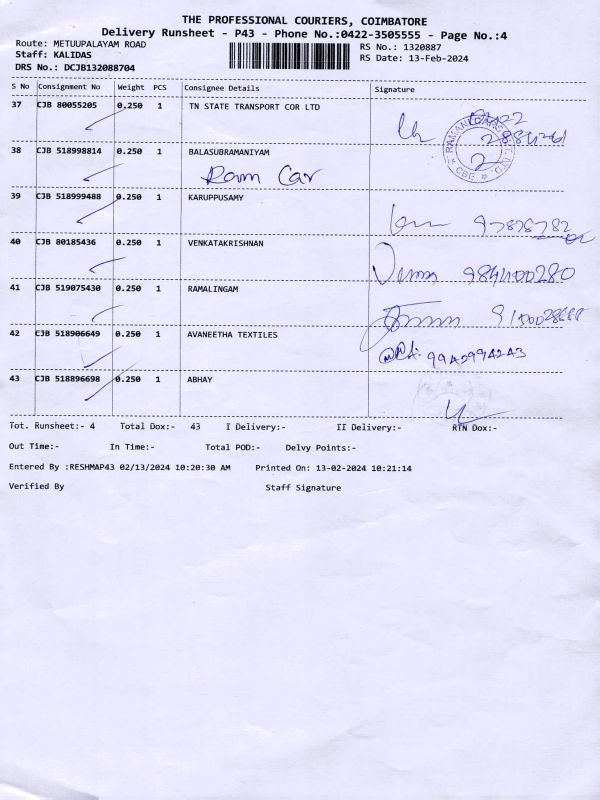 THE PROFESSIONAL COURIERS, COIMBATORE
Delivery Runsheet - P43 - Phone No.:0422-3505555 - Page No.:4
Route: METUUPALAYAM ROAD
RS No.: 1320887
Staff: KALIDAS
RS Date: 13-Feb-2024
DRS No.: DCJB132088704
S No Consignment No Weight PCS Consignee Details Signature
37 CJB 80055205 0.250 1 TN STATE TRANSPORT COR LTD
38 CJB 518998814 0.250 1 BALASUBRAMANIYAM
Ram Car
39 CJB 518999488 0.250 1 KARUPPUSAMY
40 CJB 80185436 0.250 1 VENKATAKRISHNAN
41 CJB 519075430 0.250 1 RAMALINGAM
42 CJB 518906649 0.250 1 AVANEETHA TEXTILES
9942994243
43 CJB 518896698 0.250 1 ABHAY
Tot. Runsheet:- 4 Total Dox:- 43 I Delivery:- II Delivery:- RTN Dox:-
Out Time:- In Time:- Total POD:- Delvy Points:-
Entered By :RESHMAP43 02/13/2024 10:20:30 AM Printed On: 13-02-2024 10:21:14
Verified By Staff Signature